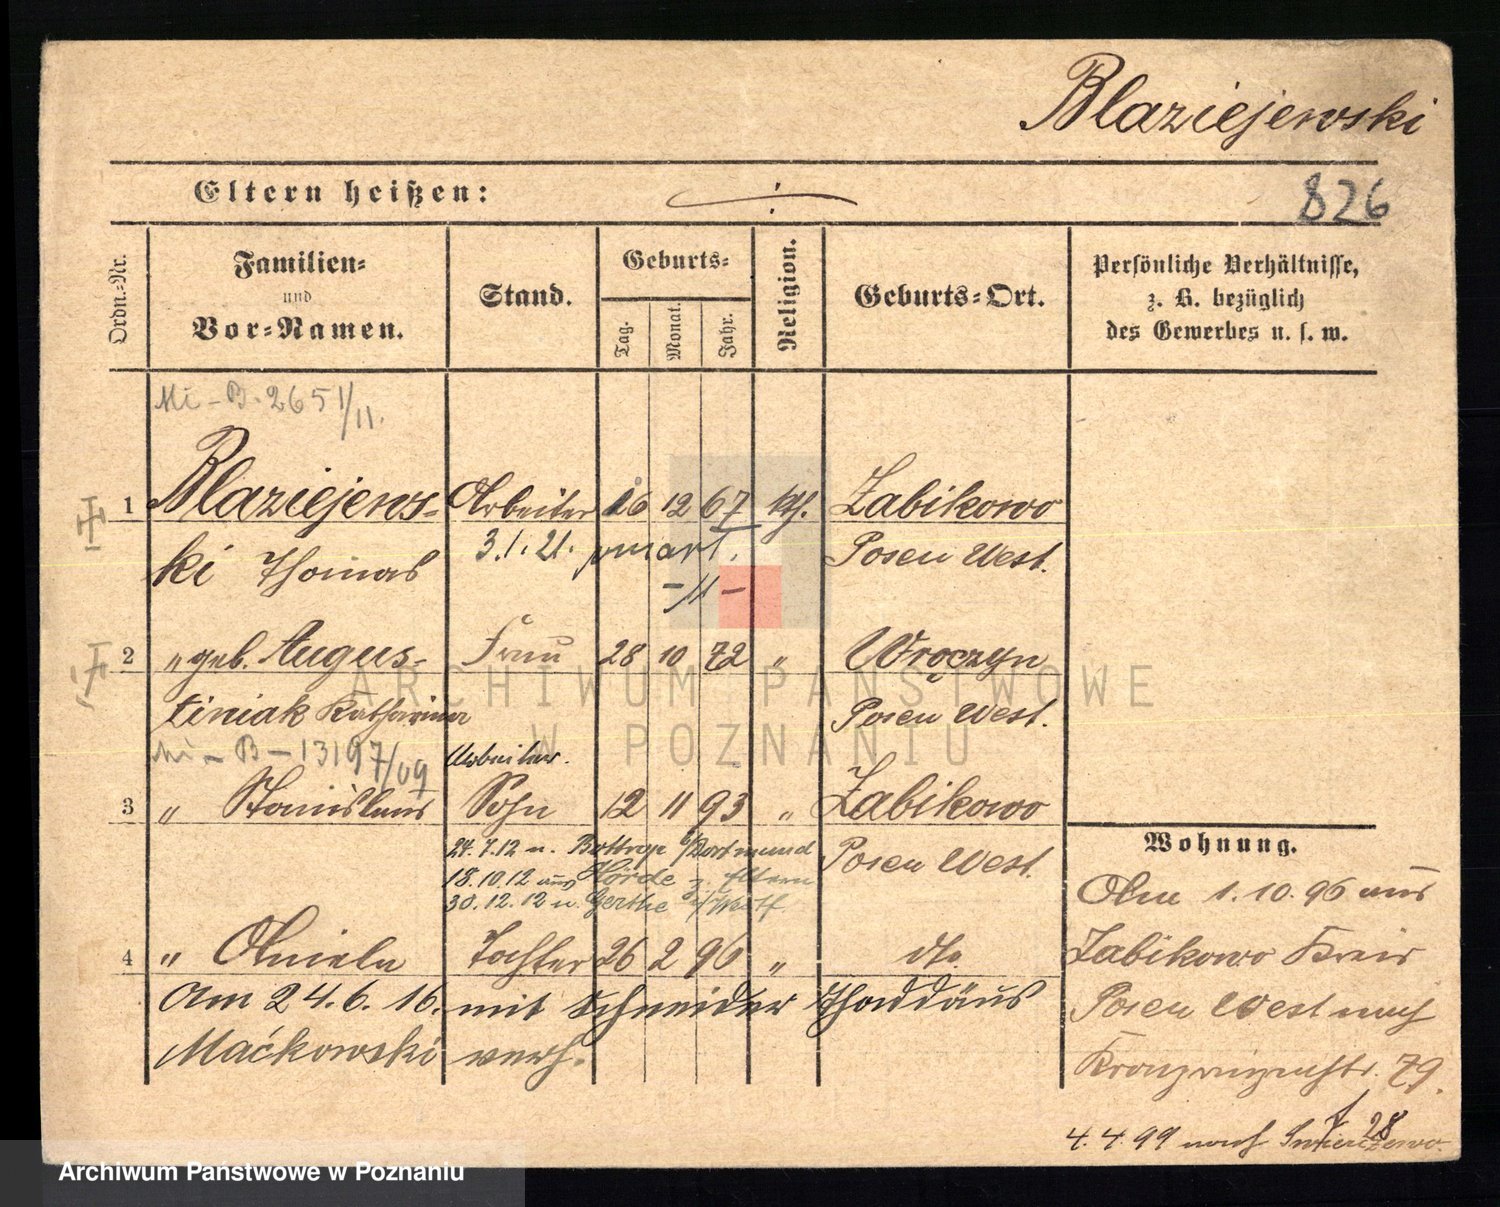 Blaziejewski
Eltern heißen:
826
Ordn.-Nr.
Familien-
und
Vor-Namen.
Stand.
Geburts-
Tag.
Monat.
Jahr.
Religion.
Geburts-Ort.
Persönliche Verhältnisse,
z. B. bezüglich
des Gewerbes u. s. w.
Mi-B-2651/11.
1 Blaziejews- Arbeiter 26 12 67 kth. Zabikowo
ki Thomas 3.1.21. Posen West.
-11-
2 " geb. Augus- Frau 28 10 72 " Wroczyn
tiniak Katharina Posen West.
Mi-B-13197/09 Arbeiter.
3 " Stanislaus Sohn 12 11 93 " Zabikowo
24.7.12 n. Bottrop b/Dortmund Posen West.
18.10.12 aus Hörde z. Eltern
30.12.12 n. Gerthe i/Westf
4 " Aniela Tochter 26 2 96 " dto.
Am 24.6.16. mit Schneider Thaddäus
Maćkowski verh.
Wohnung.
1.10.96 aus
Zabikowo Kreis
Posen West nach
Kronprinzenstr. 79.
4.4.99 nach Swierczewo. 28
ARCHIWUM PAŃSTWOWE
W POZNANIU
Archiwum Państwowe w Poznaniu